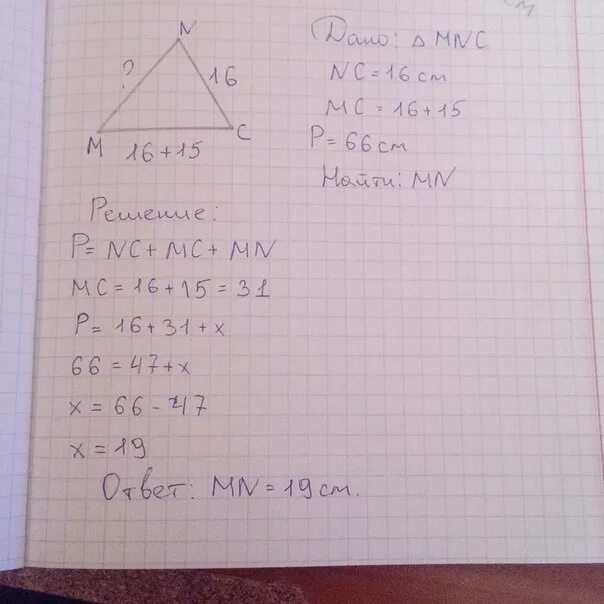 N
?
16
M
C
16 + 15
Дано: △ MNC
NC = 16 см
MC = 16 + 15
P = 66 см
Найти: MN
Решение:
P = NC + MC + MN
MC = 16 + 15 = 31
P = 16 + 31 + x
66 = 47 + x
x = 66 - 47
x = 19
Ответ: MN = 19 см.